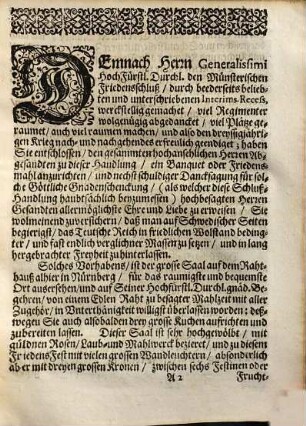 DEmnach Herrn Generalissimi
HochFürstl. Durchl. den Münsterischen
Friedensschluß / durch beederseits beliebten
und unterschriebenen Interims-Receß,
werckstellig gemachet / viel Regimenter
wolgenügig abgedancket / viel Plätze geraumet
/ auch viel raumen machen / und also den dreyssigjährigen
Krieg nach- und nachgehendes erfreulich geendiget ; haben
Sie entschlossen / den gesammten hochansehlichen Herren Abgesandten
zu dieser Handlung / ein Banquet oder Friedensmahl
anzurichten / und nechst schuldiger Dancksagung für solche
Göttliche Gnadenschenckung / (als welcher diese Schluß-
Handlung haubtsächlich benzumessen) hochbesagten Herren
Gesandten allermöglichste Ehre und Liebe zu erweisen / Sie
wolmeinend zuversichern / daß man auf Schwedischer Seiten
begierigst / das Teutsche Reich in friedlichen Wolstand bedingter
/ und fast endlich verglichner Massen zu setzen / und in lang
hergebrachter Freyheit zu hinterlassen.
Solches Vorhabens / ist der grosse Saal auf dem Rahthauß
alhier in Nürnberg / für das raumigste und bequemste
Ort ausersehen / und auf Seiner Hochfürstl. Durchl. gnäd. Begehren
/ von einem Edlen Raht zu besagter Mahlzeit mit aller
Zugehör / in Unterthänigkeit willigst überlassen worden : deßwegen
Sie auch alsobalden drey grosse Kuchen aufrichten und
zubereiten lassen. Dieser Saal ist sehr hochgewölbt / mit
güldnen Rosen / Laub- und Mahlwerck bezieret / und zu diesem
FriedensFest mit vielen grossen Wandleuchtern / absonderlich
aber mit dreyen grossen Kronen / zwischen sechs Festinen oder
A 2 Frucht-